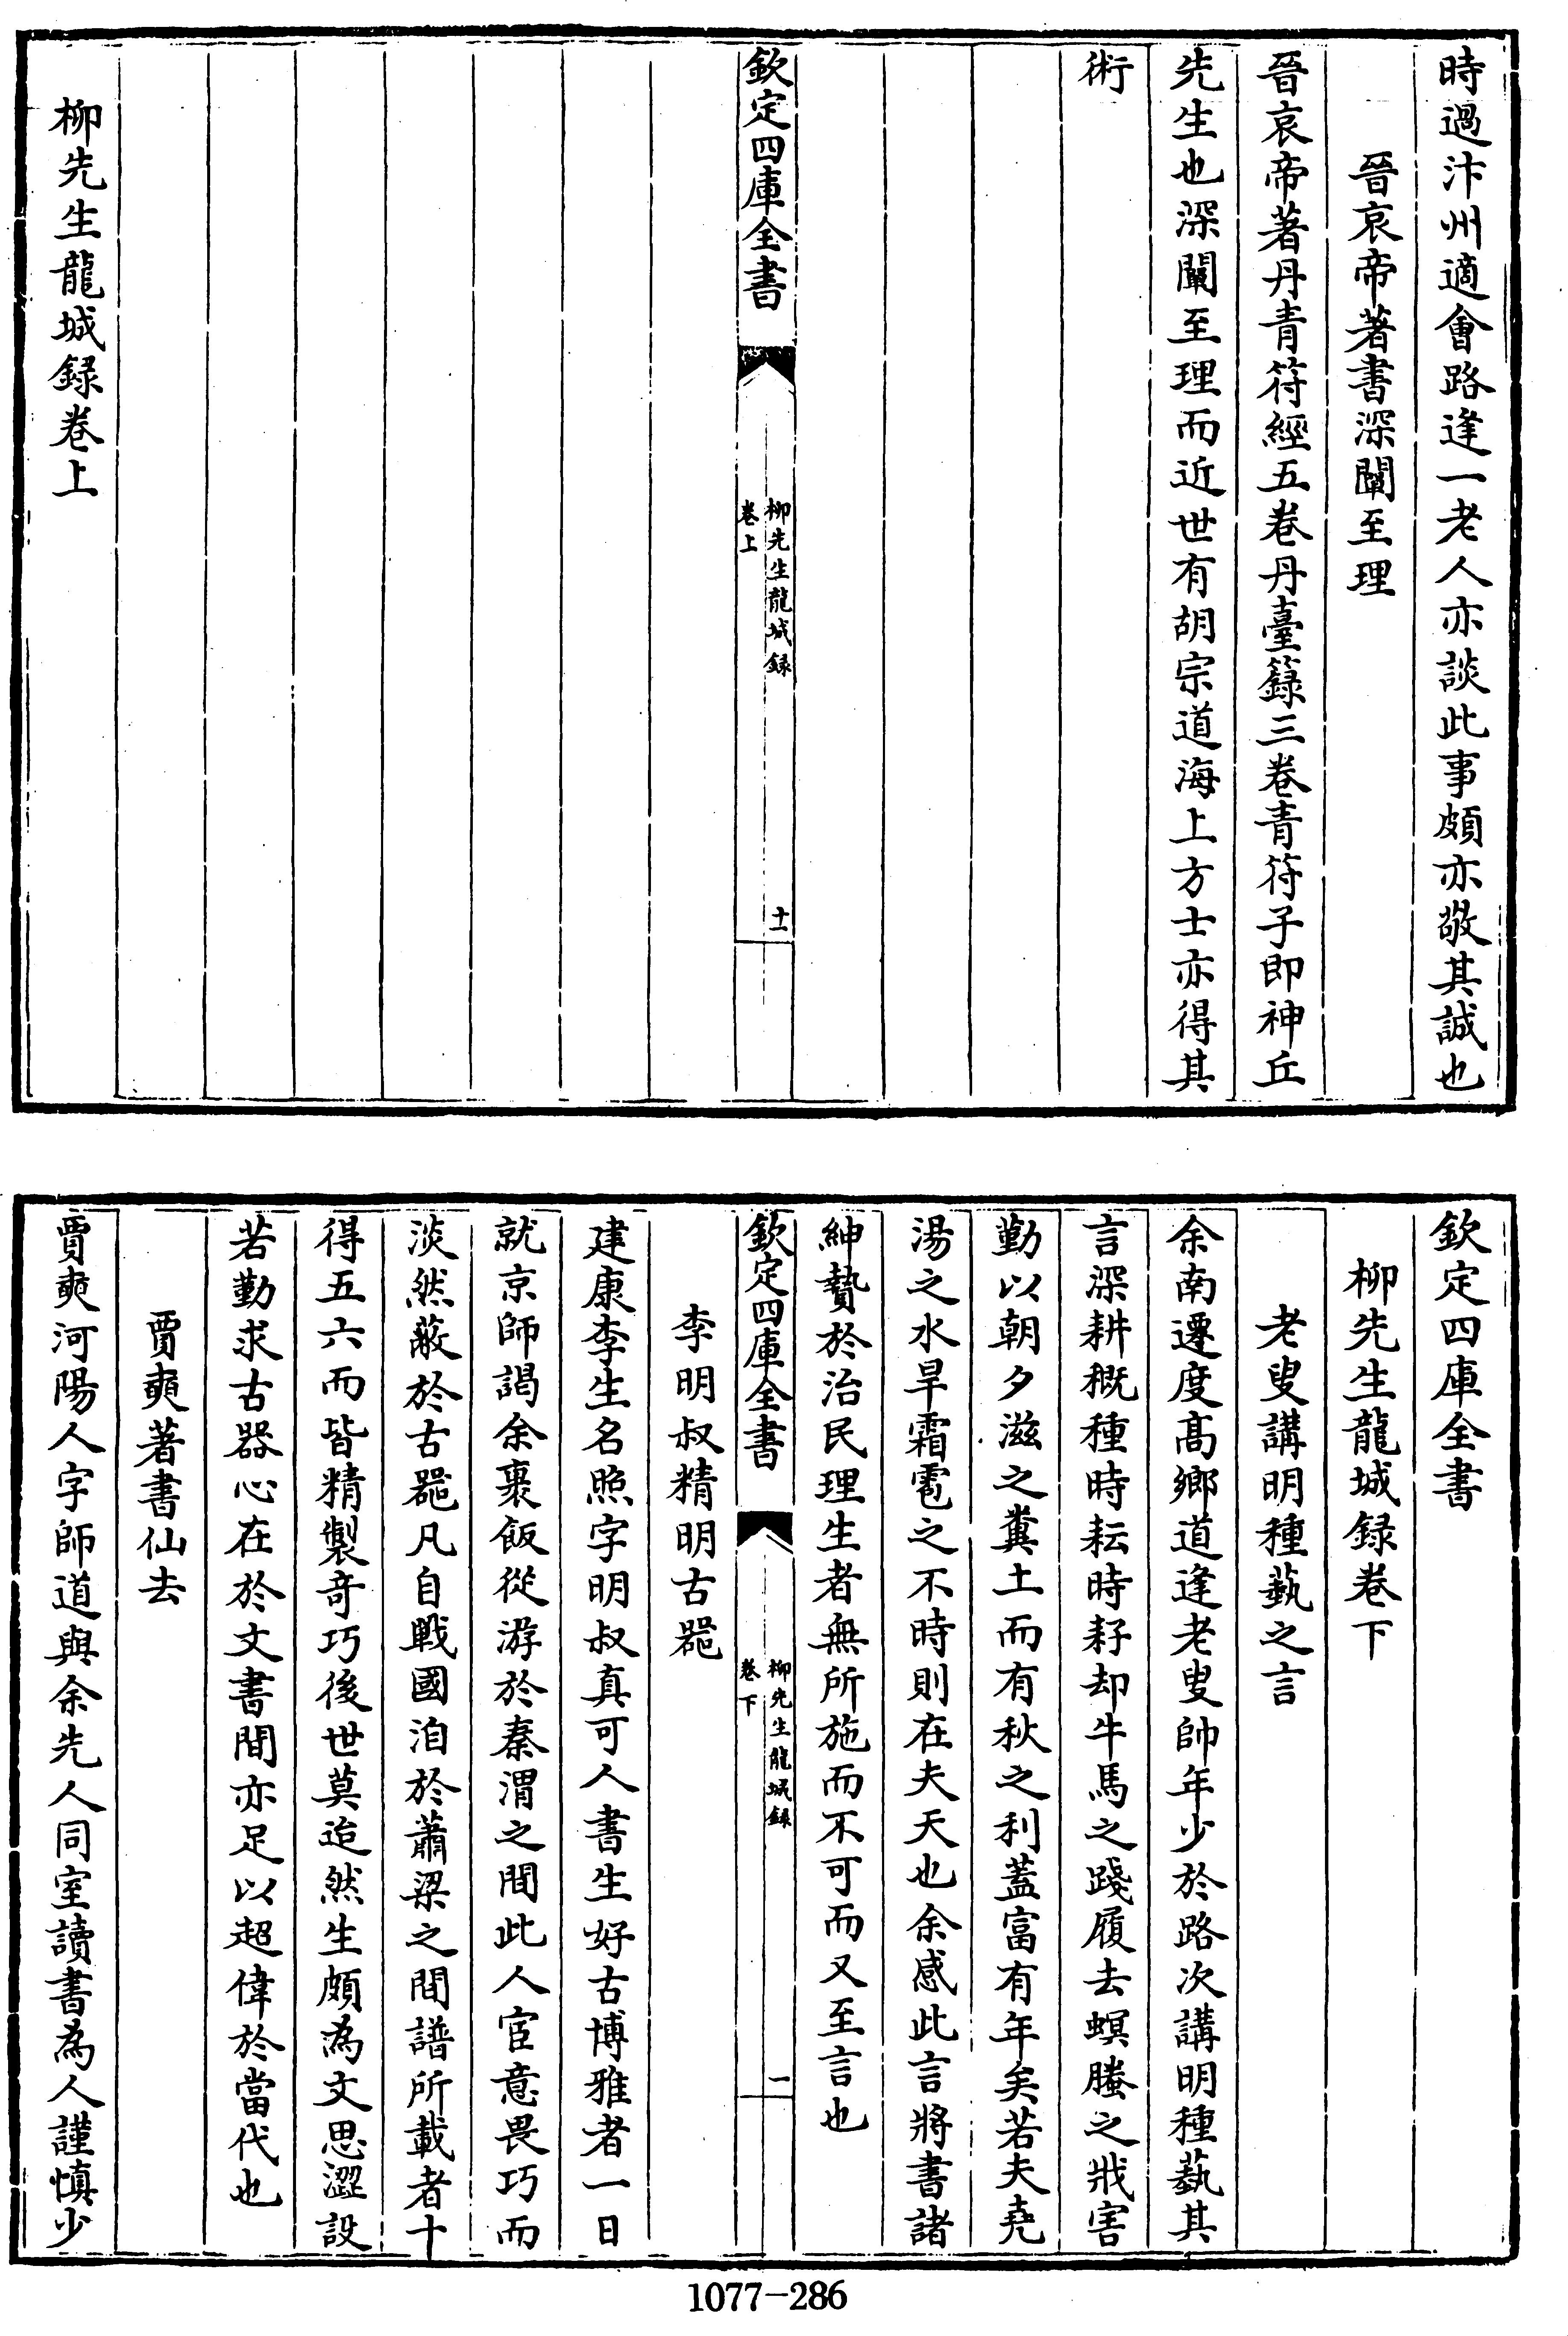 時過汴州適會路逢一老人亦談此事頗亦敬其誠也
晉哀帝著書深闡至理
晉哀帝著丹青符經五卷丹臺籙三卷青符子即神丘
先生也深闡至理而近世有胡宗道海上方士亦得其
術
欽定四庫全書
柳先生龍城録
卷上
十一
柳先生龍城録卷上
欽定四庫全書
柳先生龍城録卷下
老叟講明種蓺之言
余南遷度髙鄉道逢老叟帥年少於路次講明種蓺其
言深耕穊種時耘時耔却牛馬之踐履去螟螣之戕害
勤以朝夕滋之糞土而有秋之利蓋富有年矣若夫堯
湯之水旱霜雹之不時則在夫天也余感此言將書諸
紳贄於治民理生者無所施而不可而又至言也
欽定四庫全書
柳先生龍城録
卷下
一
李明叔精明古噐
建康李生名照字明叔真可人書生好古博雅者一日
就京師謁余裹飯從游於秦渭之間此人宦意畏巧而
淡然蔽於古噐凡自戰國洎於蕭梁之間譜所載者十
得五六而皆精製奇巧後世莫迨然生頗為文思澀設
若勤求古器心在於文書間亦足以超偉於當代也
賈奭著書仙去
賈奭河陽人字師道與余先人同室讀書為人謹慎少
1077-286